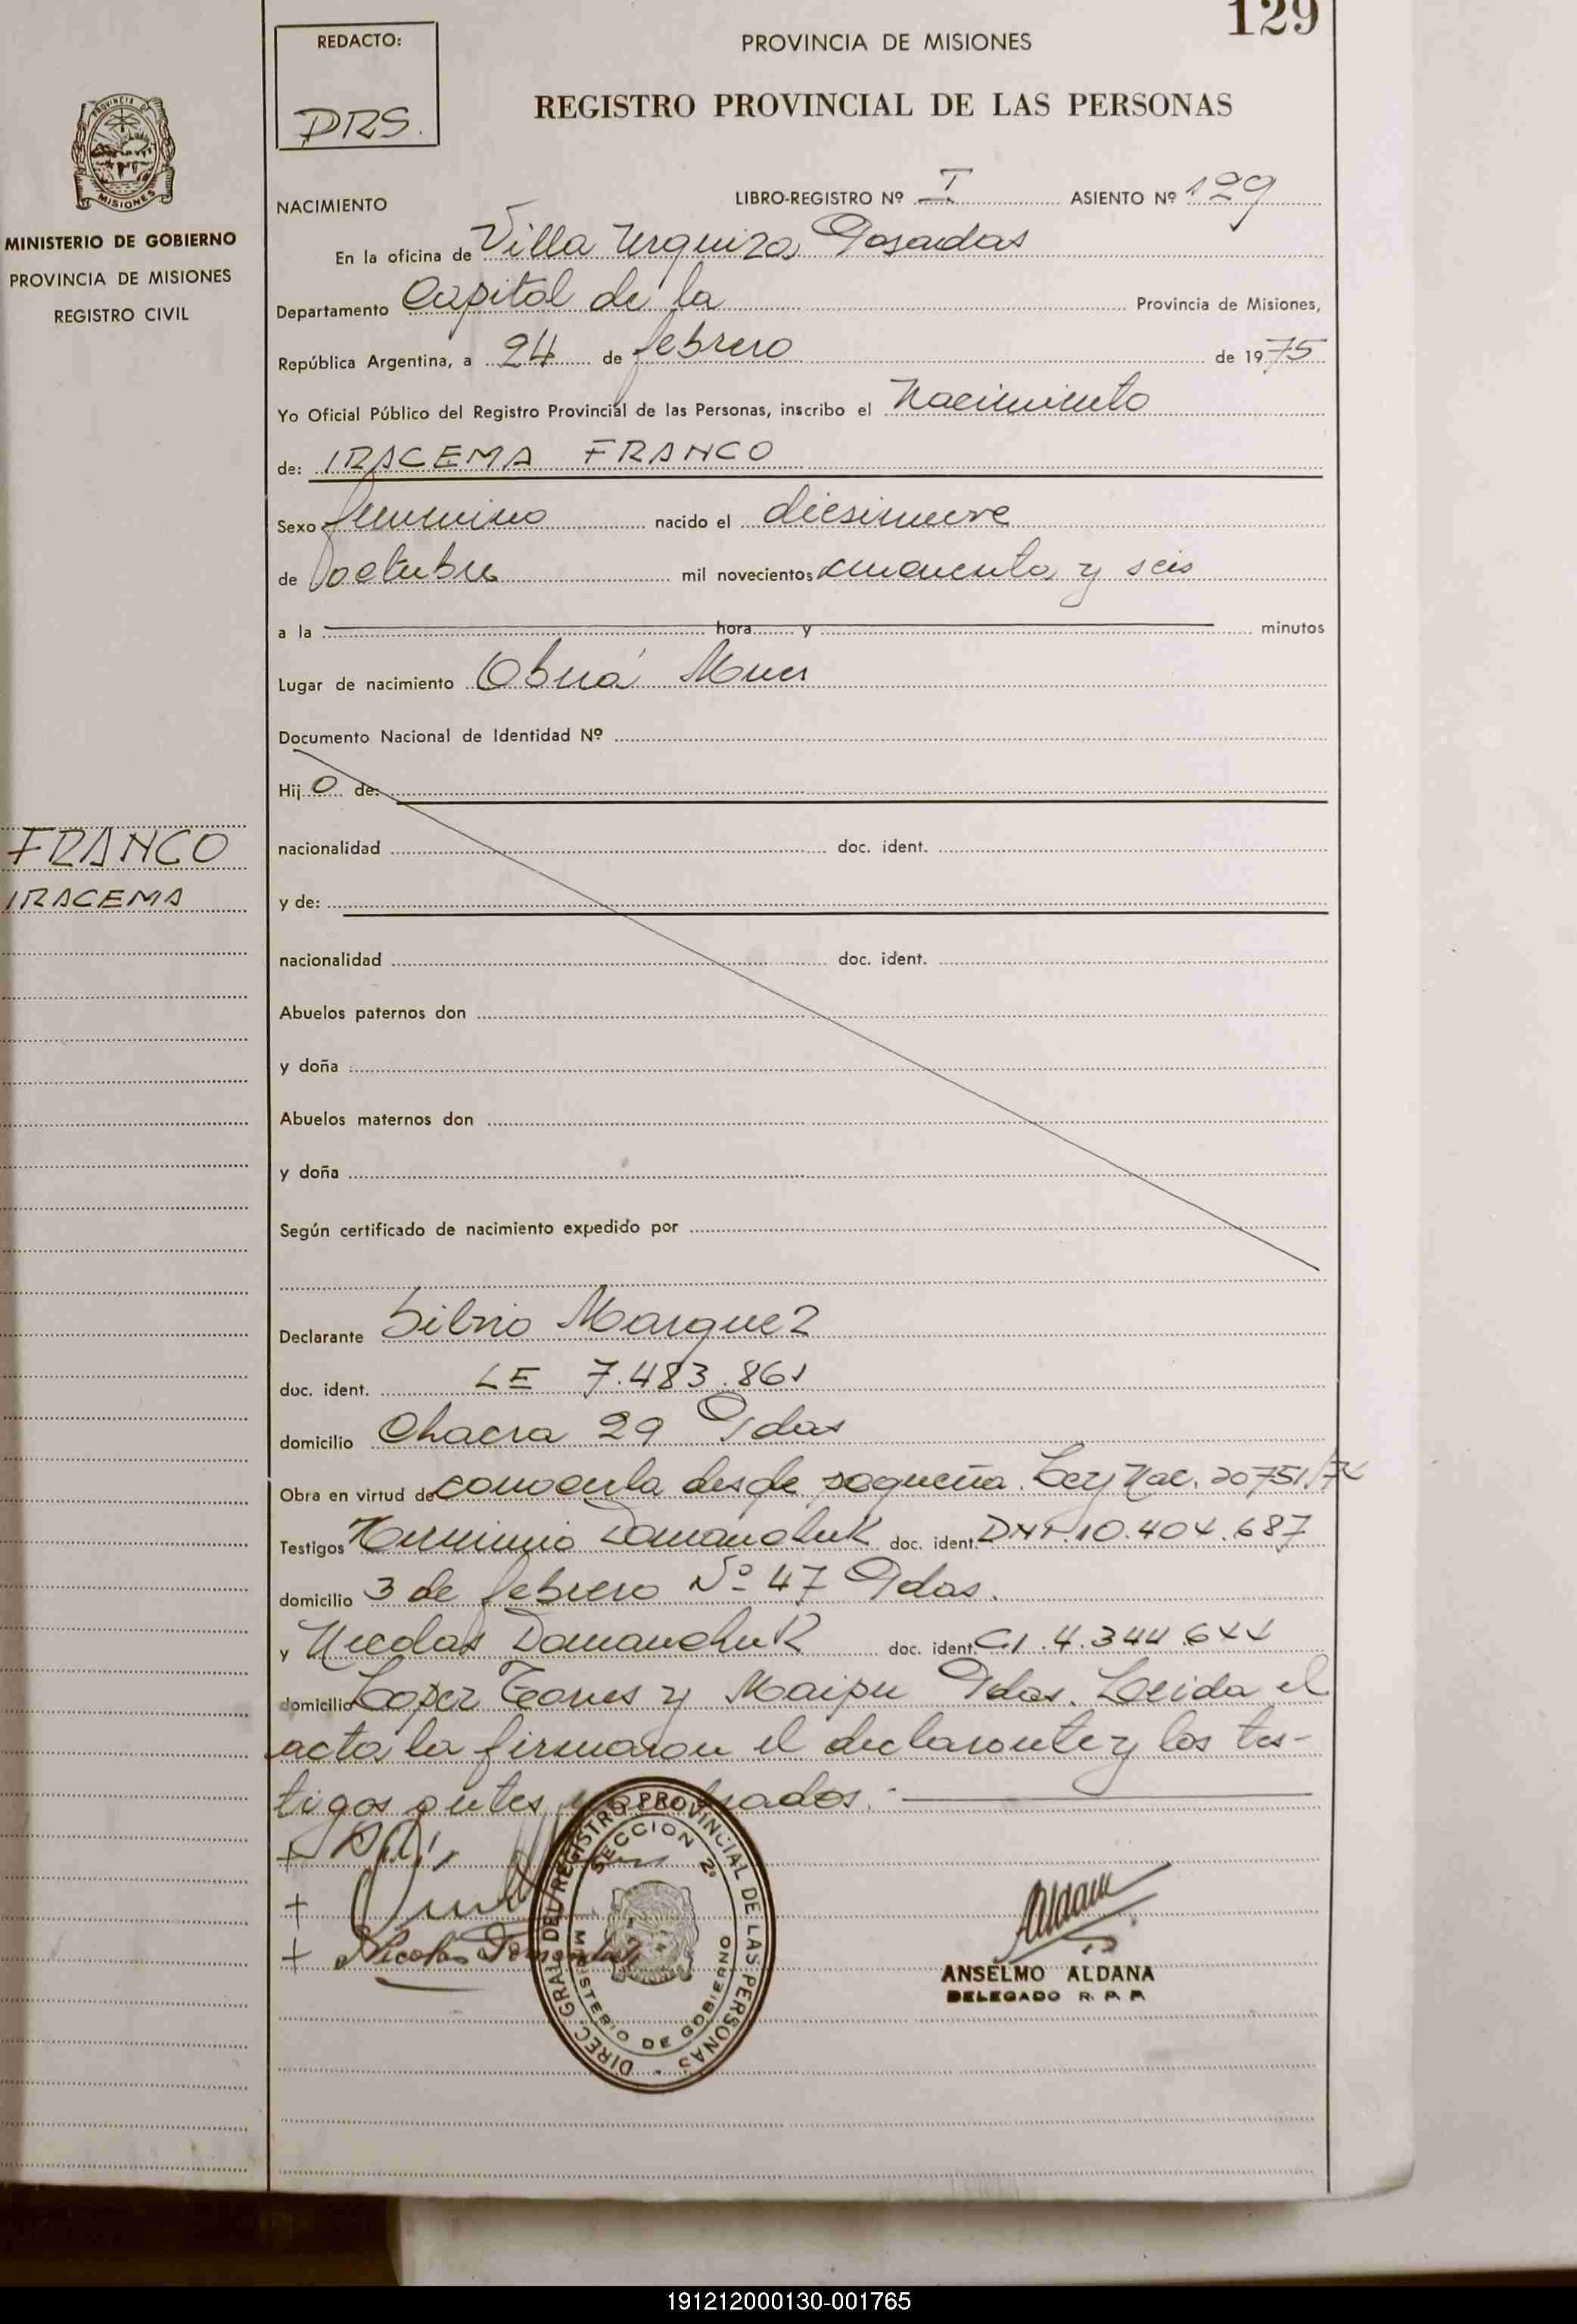 129
REDACTO:
DRS.
PROVINCIA DE MISIONES
REGISTRO PROVINCIAL DE LAS PERSONAS
PROVINCIA DE
MISIONES
MINISTERIO DE GOBIERNO
PROVINCIA DE MISIONES
REGISTRO CIVIL
FRANCO
IRACEMA
NACIMIENTO LIBRO-REGISTRO Nº I ASIENTO Nº 129
En la oficina de Villa Urquiza Posadas
Departamento Capital de la Provincia de Misiones,
República Argentina, a 24 de febrero de 1975
Yo Oficial Público del Registro Provincial de las Personas, inscribo el Nacimiento
de: IRACEMA FRANCO
Sexo femenino nacido el diesinueve
de octubre mil novecientos cincuenta y seis
a la hora y minutos
Lugar de nacimiento Oberá Mnes
Documento Nacional de Identidad Nº
Hijo de:
nacionalidad doc. ident.
y de:
nacionalidad doc. ident.
Abuelos paternos don
y doña
Abuelos maternos don
y doña
Según certificado de nacimiento expedido por
Declarante Silvio Marquez
doc. ident. LE 7.483.861
domicilio Chacra 29 Pdas
Obra en virtud de conocerla desde pequeña. Ley Nac. 20751/74
Testigos Herminio Domanchuk doc. ident. DNI. 10.404.687
domicilio 3 de febrero Nº 47 Pdas.
y Nicolas Domanchuk doc. ident. C.I. 4.344.644
domicilio Lopez Torres y Maipu Pdas. Leida el
acta la firmaron el declarante y los tes-
tigos antes nombrados.-
Nicolas
DIREC. GRAL. DEL REGISTRO PROVINCIAL DE LAS PERSONAS
SECCION 2ª
MINISTERIO DE GOBIERNO
Aldana
ANSELMO ALDANA
DELEGADO R. P. P.
191212000130-001765